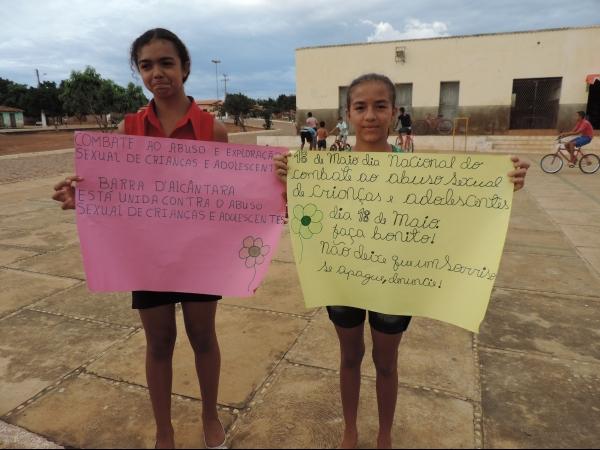 COMBATE AO ABUSO E EXPLORAÇÃO
SEXUAL DE CRIANÇAS E ADOLESCENT
BARRA D'ALCÂNTARA
ESTÁ UNIDA CONTRA O ABUSO
SEXUAL DE CRIANÇAS E ADOLESCENTES
18 de Maio dia Nacional do
combate ao abuso sexual
de crianças e adolescentes
dia 18 de Maio.
faça bonito!
Não deixe que um sorriso
se apague, denuncie!